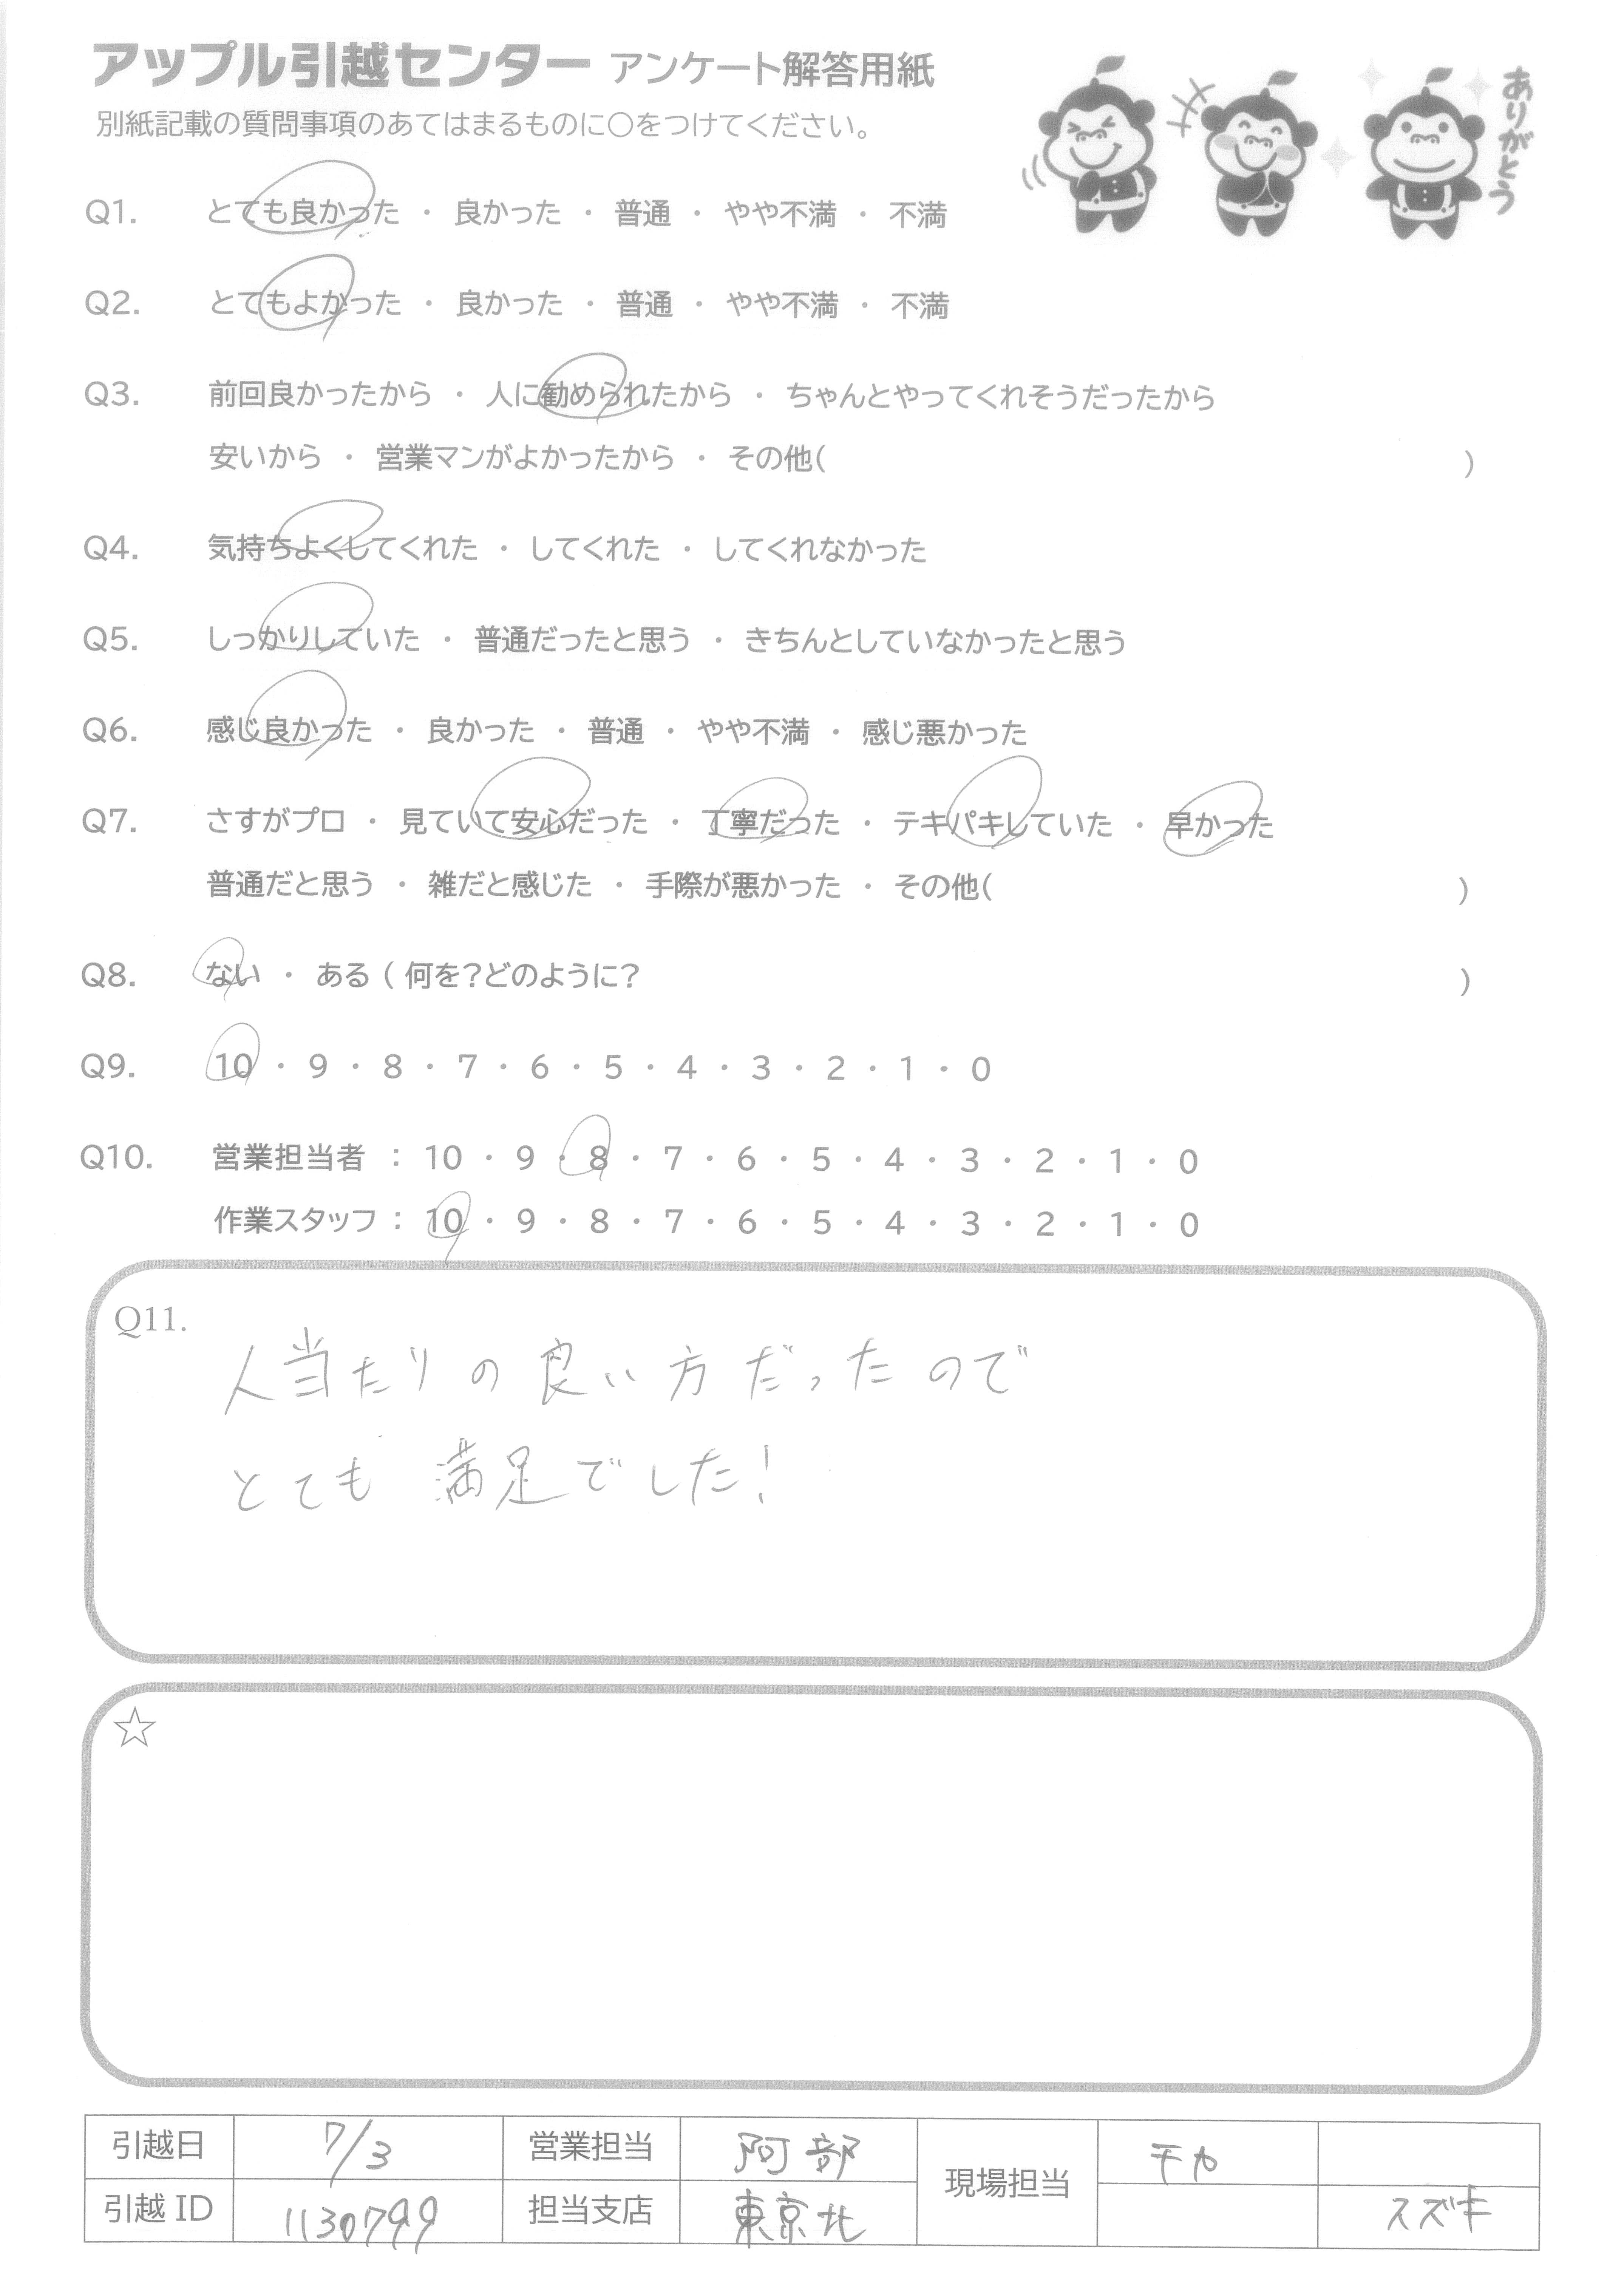 アップル引越センター アンケート解答用紙
別紙記載の質問事項のあてはまるものに○をつけてください。
ありがとう
Q1. とても良かった ・ 良かった ・ 普通 ・ やや不満 ・ 不満
Q2. とてもよかった ・ 良かった ・ 普通 ・ やや不満 ・ 不満
Q3. 前回良かったから ・ 人に勧められたから ・ ちゃんとやってくれそうだったから
安いから ・ 営業マンがよかったから ・ その他( )
Q4. 気持ちよくしてくれた ・ してくれた ・ してくれなかった
Q5. しっかりしていた ・ 普通だったと思う ・ きちんとしていなかったと思う
Q6. 感じ良かった ・ 良かった ・ 普通 ・ やや不満 ・ 感じ悪かった
Q7. さすがプロ ・ 見ていて安心だった ・ 丁寧だった ・ テキパキしていた ・ 早かった
普通だと思う ・ 雑だと感じた ・ 手際が悪かった ・ その他( )
Q8. ない ・ ある ( 何を?どのように? )
Q9. 10 ・ 9 ・ 8 ・ 7 ・ 6 ・ 5 ・ 4 ・ 3 ・ 2 ・ 1 ・ 0
Q10. 営業担当者 : 10 ・ 9 ・ 8 ・ 7 ・ 6 ・ 5 ・ 4 ・ 3 ・ 2 ・ 1 ・ 0
作業スタッフ : 10 ・ 9 ・ 8 ・ 7 ・ 6 ・ 5 ・ 4 ・ 3 ・ 2 ・ 1 ・ 0
Q11.
人当たりの良い方だったので
とても満足でした!
☆
引越日 7/3 営業担当 阿部 現場担当
引越 ID 1130799 担当支店 東京北 スズキ